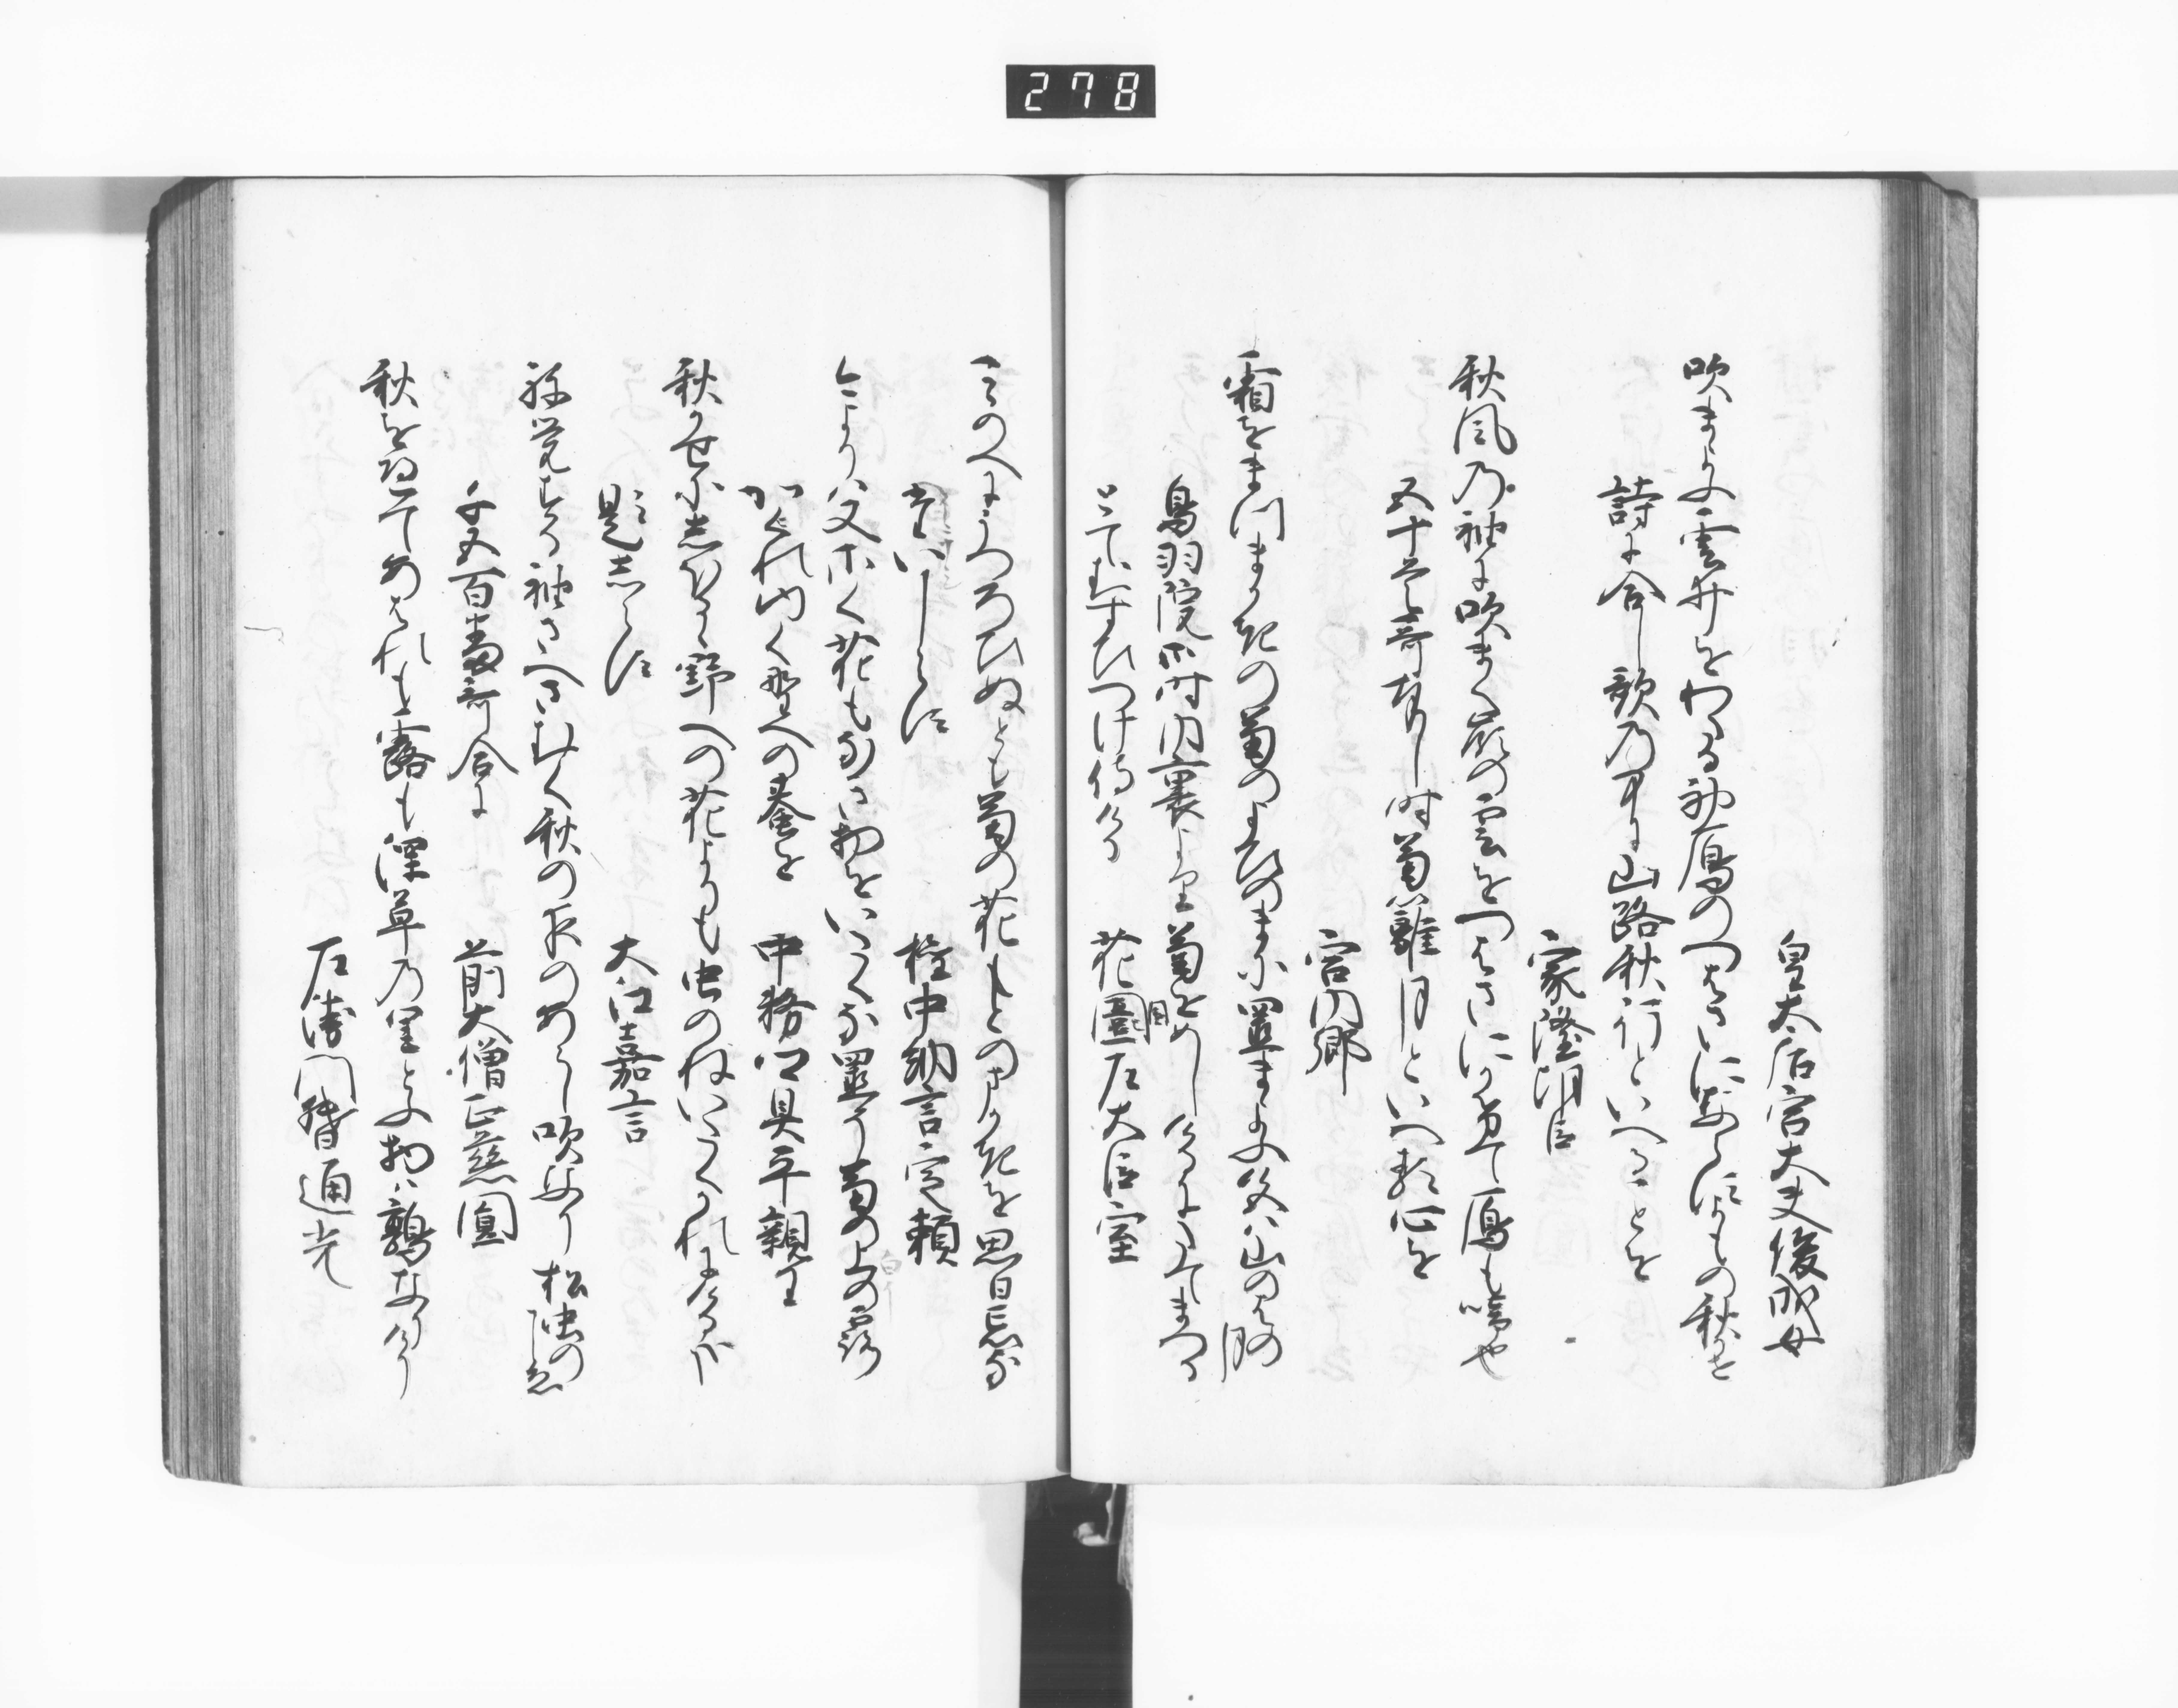 278
皇太后宮大夫俊成女
吹まよふ雲井をわたる初鴈のつはさにならす四方の秋かせ
詩に合し歌の中に山路秋行といへることを
家隆朝臣
秋風の袖に吹まく峯の雲をつはさにかけて鴈も鳴也
五十首哥奉し時菊籬月といへる心を
宮内卿
霜をまつまかきの菊のよひのまに置まよふ色は山のはの月
鳥羽院御時内裏より菊をめしけるにたてまつる
とてむすひつけ侍ける
花園左大臣室
こゝのへにうつろひぬとも菊の花もとのまかきを思ひ忘るな
題しらす
権中納言定頼
今よりは又さく花もなき物をいたくな置そ菊の上の露
かれゆく野への蛬を
中務卿具平親王
秋かせにしほるゝ野への花よりも虫のねいたくかれにけるかな
題しらす
大江嘉言
ね覚する袖さへさむく秋の夜のあらし吹なり松虫のこゑ
千五百番哥合に
前大僧正慈圓
秋をへてあはれも露も深草の里とふ物は鶉なりけり
左衛門督通光